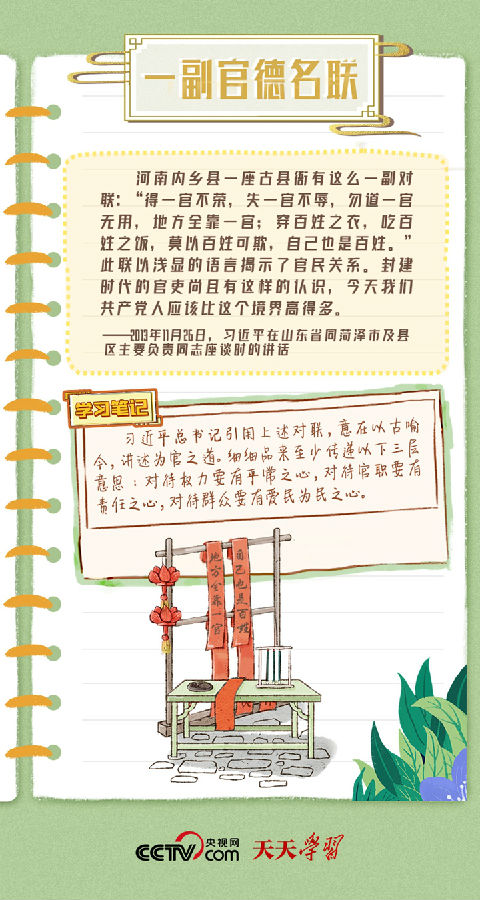 一副官德名联
河南内乡县一座古县衙有这么一副对
联：“得一官不荣，失一官不辱，勿道一官
无用，地方全靠一官；穿百姓之衣，吃百
姓之饭，莫以百姓可欺，自己也是百姓。”
此联以浅显的语言揭示了官民关系。封建
时代的官吏尚且有这样的认识，今天我们
共产党人应该比这个境界高得多。
——2013年11月26日，习近平在山东省同菏泽市及县
区主要负责同志座谈时的讲话
学习笔记
习近平总书记引用上述对联，意在以古喻
今，讲述为官之道。细细品来至少传递以下三层
意思：对待权力要有平常之心，对待官职要有
责任之心，对待群众要有爱民为民之心。
地方全靠一官
自己也是百姓
CCTV.com 央视网
天天学习